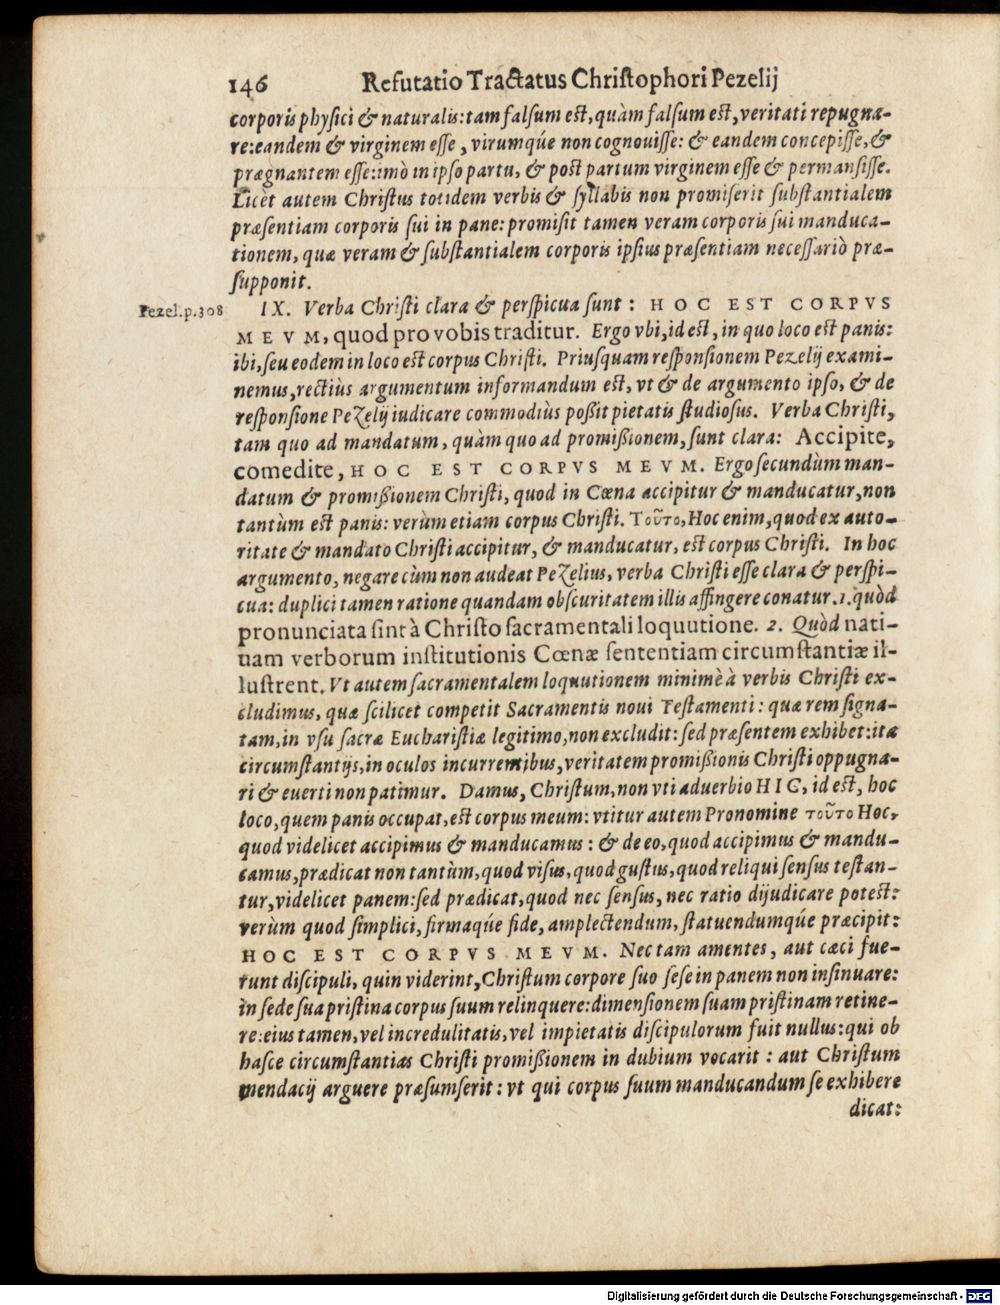 146 Refutatio Tractatus Christophori Pezelij
corporis physici & naturalis: tam falsum est, quàm falsum est, veritati repugna-
re: eandem & virginem esse, virumqúe non cognouisse: & eandem concepisse, &
prægnantem esse: imò in ipso partu, & post partum virginem esse & permansisse.
Licèt autem Christus totidem verbis & syllabis non promiserit substantialem
præsentiam corporis sui in pane: promisit tamen veram corporis sui manduca-
tionem, quæ veram & substantialem corporis ipsius præsentiam necessariò præ-
supponit.
Pezel. p. 308 IX. Verba Christi clara & perspicua sunt: HOC EST CORPVS
MEVM, quod pro vobis traditur. Ergo vbi, id est, in quo loco est panis:
ibi, seu eodem in loco est corpus Christi. Priusquam responsionem Pezelij exami-
nemus, rectiùs argumentum informandum est, vt & de argumento ipso, & de
responsione Pezelij iudicare commodiùs poßit pietatis studiosus. Verba Christi,
tam quo ad mandatum, quàm quo ad promißionem, sunt clara: Accipite,
comedite, HOC EST CORPVS MEVM. Ergo secundùm man-
datum & promißionem Christi, quod in Cœna accipitur & manducatur, non
tantùm est panis: verùm etiam corpus Christi. Τοῦτο, Hoc enim, quod ex auto-
ritate & mandato Christi accipitur, & manducatur, est corpus Christi. In hoc
argumento, negare cùm non audeat Pezelius, verba Christi esse clara & perspi-
cua: duplici tamen ratione quandam obscuritatem illis affingere conatur. 1. quòd
pronunciata sint à Christo sacramentali loquutione. 2. Quòd nati-
uam verborum institutionis Cœnæ sententiam circumstantiæ il-
lustrent. Vt autem sacramentalem loquutionem minimè à verbis Christi ex-
cludimus, quæ scilicet competit Sacramentis noui Testamenti: quæ rem signa-
tam, in vsu sacræ Eucharistiæ legitimo, non excludit: sed præsentem exhibet: ita
circumstantijs, in oculos incurrentibus, veritatem promißionis Christi oppugna-
ri & euerti non patimur. Damus, Christum, non vti aduerbio HIC, id est, hoc
loco, quem panis occupat, est corpus meum: vtitur autem Pronomine τοῦτο Hoc,
quod videlicet accipimus & manducamus: & de eo, quod accipimus & mandu-
camus, prædicat non tantùm, quod visus, quod gustus, quod reliqui sensus testan-
tur, videlicet panem: sed prædicat, quod nec sensus, nec ratio dijudicare potest:
verùm quod simplici, firmaqúe fide, amplectendum, statuendumqúe præcipit:
HOC EST CORPVS MEVM. Nec tam amentes, aut cæci fue-
runt discipuli, quin viderint, Christum corpore suo sese in panem non insinuare:
in sede sua pristina corpus suum relinquere: dimensionem suam pristinam retine-
re: eius tamen, vel incredulitatis, vel impietatis discipulorum fuit nullus: qui ob
hasce circumstantias Christi promißionem in dubium vocarit: aut Christum
mendacij arguere præsumserit: vt qui corpus suum manducandum se exhibere
dicat:
Digitalisierung gefördert durch die Deutsche Forschungsgemeinschaft - DFG